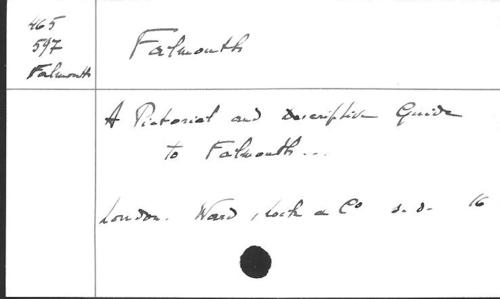 465
597
Falmouth
Falmouth
A Pictorial and Descriptive Guide
to Falmouth...
London. Ward, Lock & Co s.d. 16